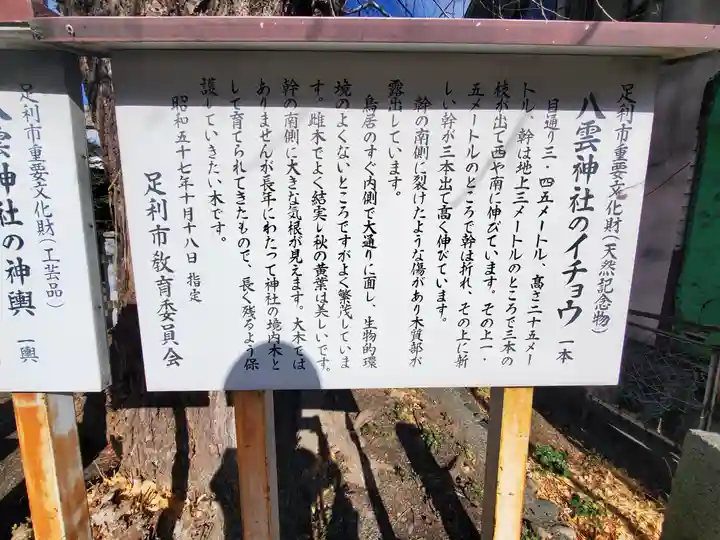 足利市重要文化財(天然記念物)
八雲神社のイチョウ 一本
目通り三・四五メートル、高さ二十五メー
トル、幹は地上三メートルのところで三本の
枝が出て西や南に伸びています。その上一・
五メートルのところで幹は折れ、その上に新
しい幹が三本出て高く伸びています。
幹の南側に裂けたような傷があり木質部が
露出しています。
鳥居のすぐ内側で大通りに面し、生物的環
境のよくないところですがよく繁茂していま
す。雌木でよく結実し秋の黄葉は美しいです。
幹の南側に大きな気根が見えます。大木では
ありませんが長年にわたって神社の境内木と
して育てられてきたもので、長く残るよう保
護していきたい木です。
昭和五十七年十月十八日 指定
足利市教育委員会
足利市重要文化財(工芸品)
八雲神社の神輿 一輿